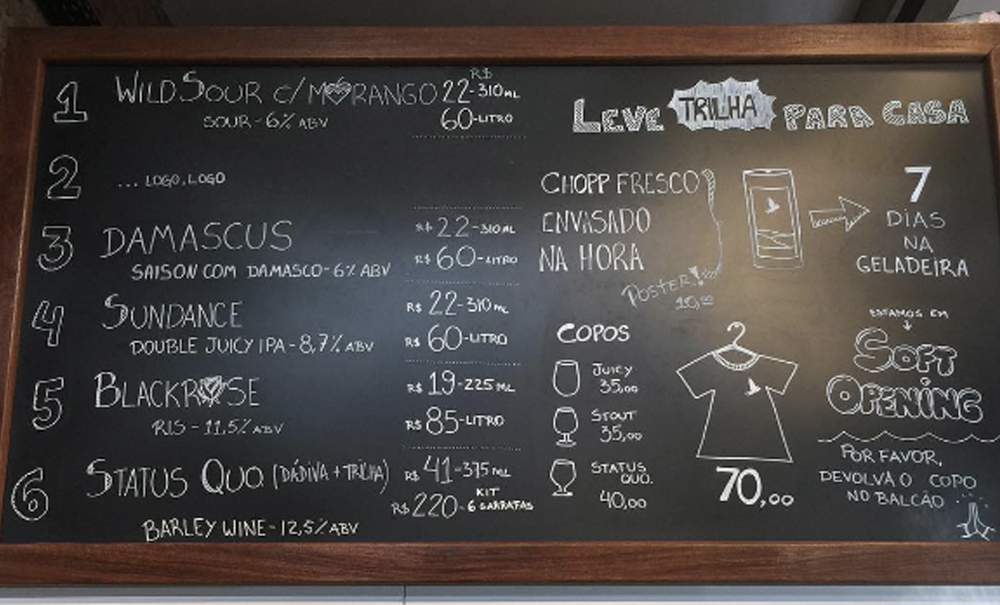 1 WILD SOUR C/ MORANGO R$ 22-310ML
SOUR-6% ABV 60-LITRO
2 ... LOGO, LOGO
3 DAMASCUS R$ 22-310ML
SAISON COM DAMASCO-6% ABV R$ 60-LITRO
4 SUNDANCE R$ 22-310ML
DOUBLE JUICY IPA-8,7% ABV R$ 60-LITRO
5 BLACKROSE R$ 19-225ML
RIS-11,5% ABV R$ 85-LITRO
6 STATUS QUO (DÁDIVA + TRILHA) R$ 41-375ML
R$ 220-KIT 6 GARRAFAS
BARLEY WINE-12,5% ABV
LEVE TRILHA PARA CASA
CHOPP FRESCO
ENVASADO
NA HORA
7
DIAS
NA
GELADEIRA
POSTER!
10,00
COPOS
JUICY
35,00
STOUT
35,00
STATUS
QUO.
40,00
70,00
ESTAMOS EM
SOFT
OPENING
POR FAVOR,
DEVOLVA O COPO
NO BALCÃO...